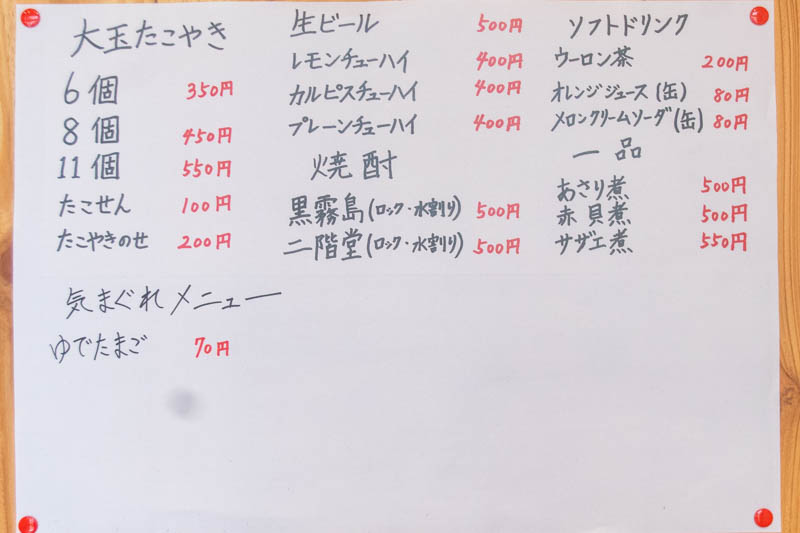 大玉たこやき
6個 350円
8個 450円
11個 550円
たこせん 100円
たこやきのせ 200円
気まぐれメニュー
ゆでたまご 70円
生ビール 500円
レモンチューハイ 400円
カルピスチューハイ 400円
プレーンチューハイ 400円
焼酎
黒霧島(ロック・水割り) 500円
二階堂(ロック・水割り) 500円
ソフトドリンク
ウーロン茶 200円
オレンジジュース(缶) 80円
メロンクリームソーダ(缶) 80円
一品
あさり煮 500円
赤貝煮 500円
サザエ煮 550円